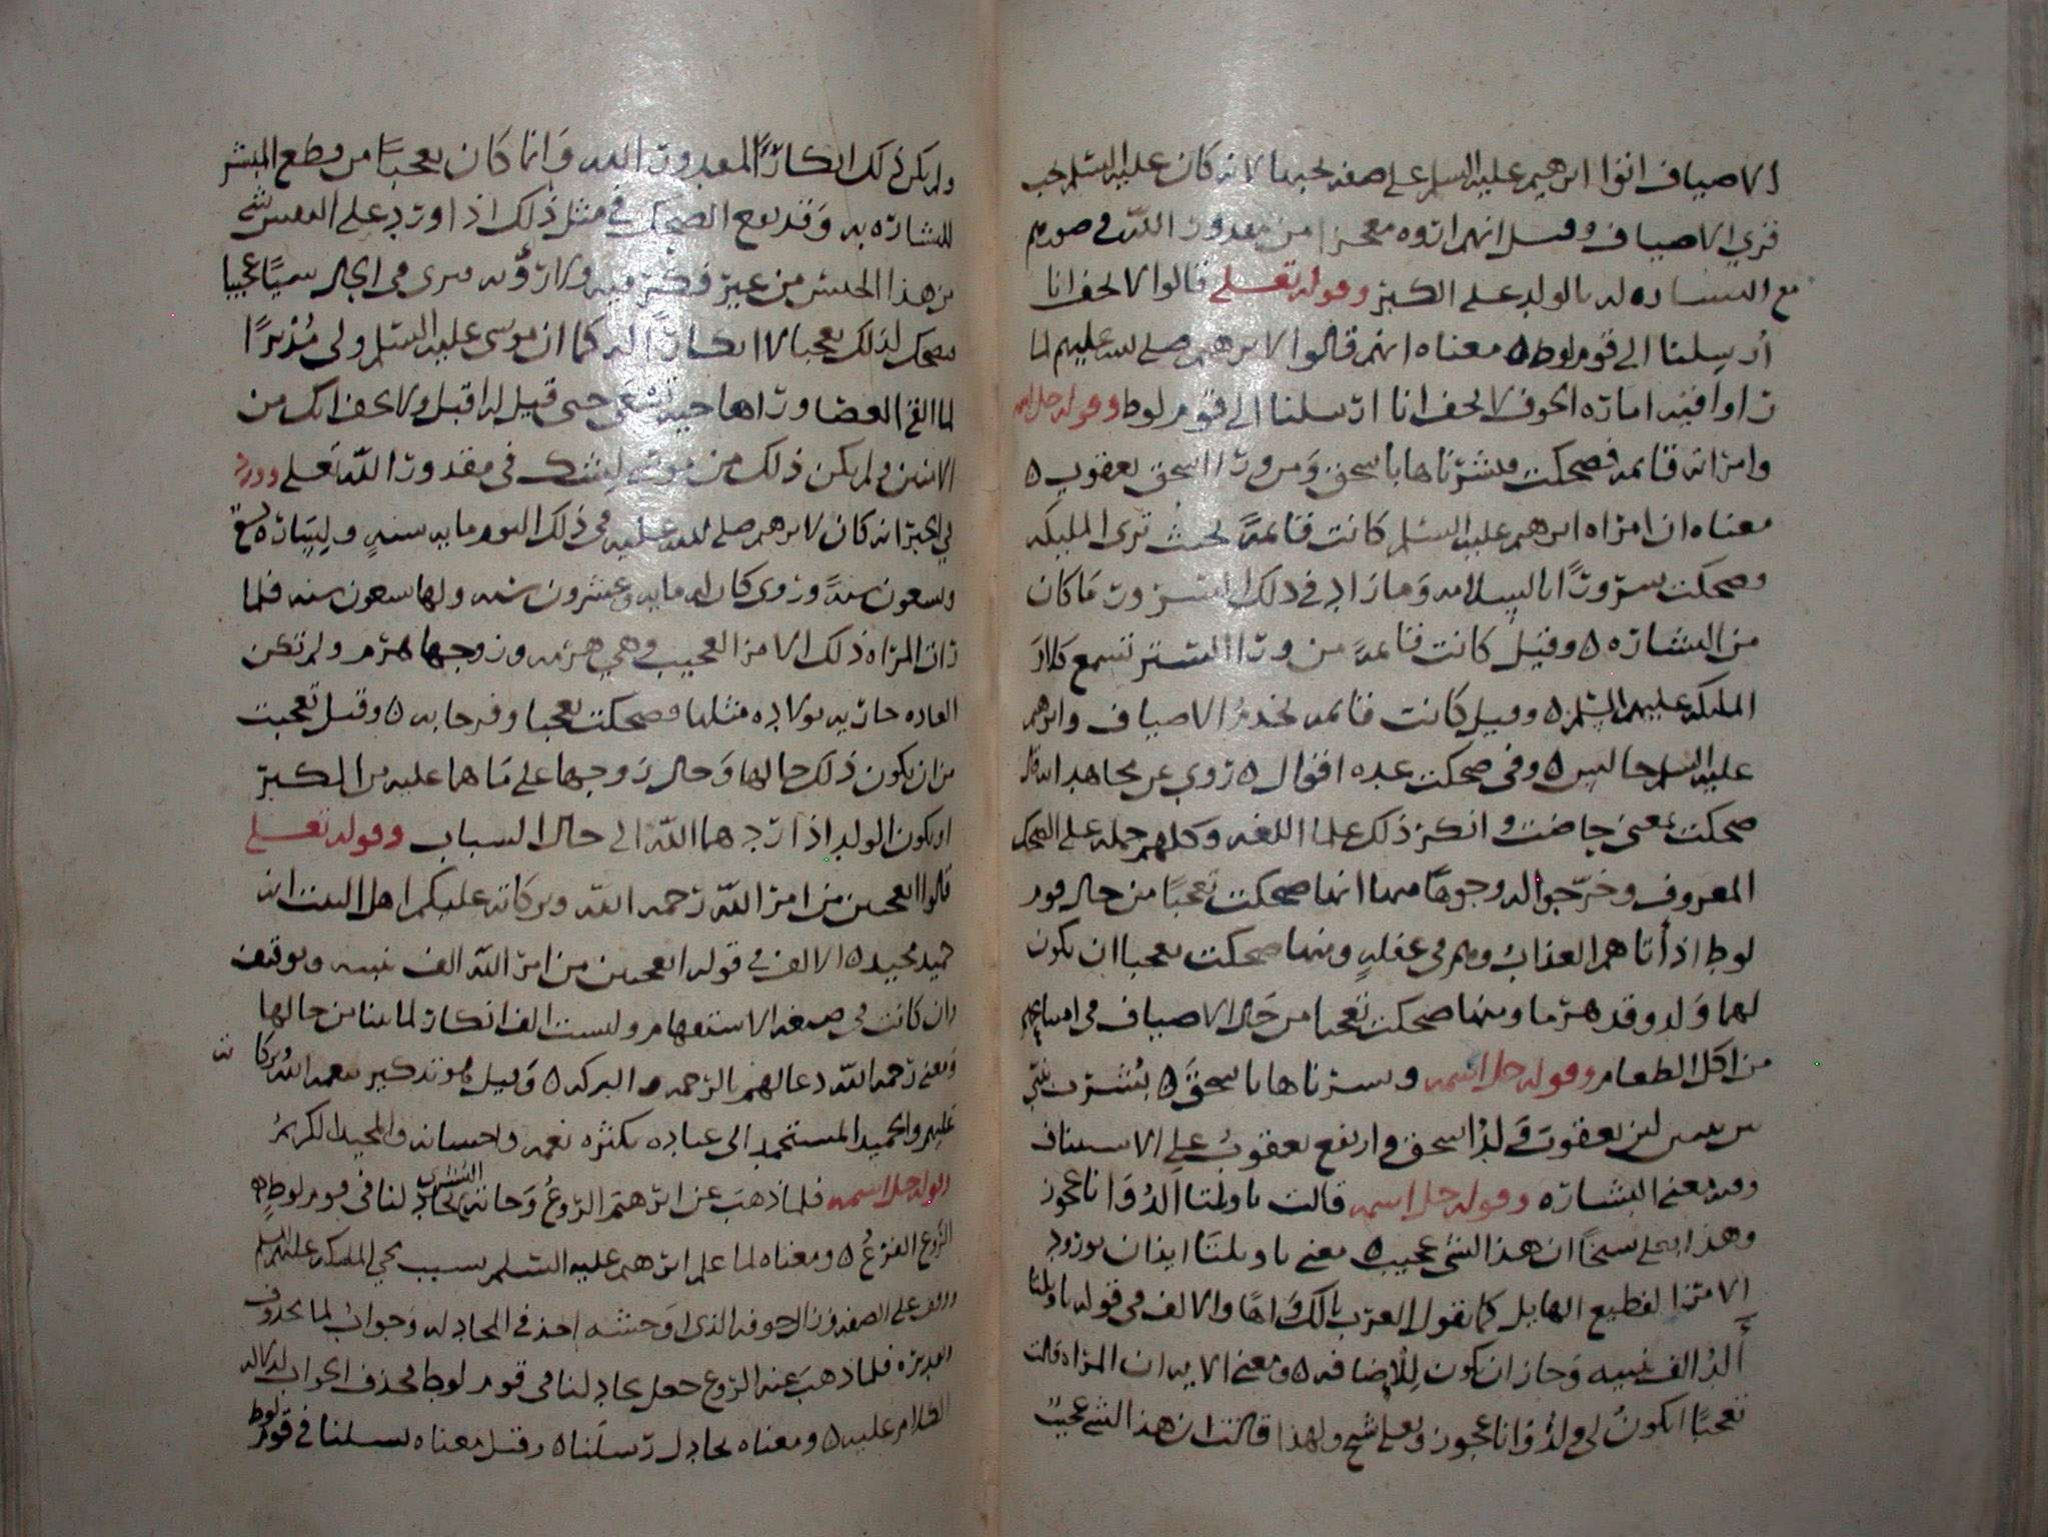 الاضياف اتوا ابرهيم عليه السلم على صفه يحبها لانه كان عليه السلم يحب
قري الاضياف وقيل انهم اروه معجزا من مقدور الله في صورهم
مع البشاره له بالولد على الكبر وقوله تعلى قالوا لا تخف انا
أرسلنا الى قوم لوط ه معناه انهم قالوا لابرهيم صلى الله عليهم لما
راوا فيه اماره الخوف لا تخف انا ارسلنا الى قوم لوط وقوله جل اسمه
وامراته قائمه فضحكت فبشرناها باسحق ومن ورا اسحق يعقوب ه
معناه ان امراه ابرهيم عليه السلم كانت قائمةً بحيث ترى المليكه
فضحكت سرورًا بالسلامه وما زاد في ذلك السرور ما كان
من البشاره ه وقيل كانت قائمةً من ورا الستر تسمع كلام
المليكه عليهم السلم ه وقيل كانت قائمه تخدمُ الاضياف وابرهيم
عليه السلم جالس ه وفي ضحكت عده اقوال ه روي عن مجاهد انه قال
ضحكت بمعنى حاضت وانكر ذلك علما اللغه وكلهم حمله على الضحك
المعروف وخرّجوا له وجوهًا منها انها ضحكت تعجبًا من حال قوم
لوط اذ أتاهم العذابُ وهم في غفلةٍ ومنها ضحكت تعجبا ان يكون
لهما وَلد وقد هرما ومنها ضحكت تعجبا من حَال الاضياف في امتناعهم
من اكل الطعام وقوله جل اسمه وبشرناها باسحقَ ه بُشّرت بنبي
بين نبيين لان يعقوبَ وَلدُ اسحق وارتفع يعقوبُ على الاستيناف
وفيه معنى البشاره وقوله جل اسمه قالت ياويلتا أألدُ وَانا عجوز
وهذا بعلي شيخًا ان هذا لشي عجيب ه معنى ياويلتَا ايذان بورود
الامر الفظيع الهايل كما تقول العرب يالك وَاهًا والالف في قوله ياويلتا
أألدُ الف ندبيه وَجاز ان تكون للإضافه ه ومعنى الايه ان المراه قالت
تعجبًا ايكونُ لي ولدٌ وَانا عجوز وبعلي شيخ ولهذا قالت ان هذا لشي عجيبٌ
ولم يكن ذلك انكارًا لمقدور الله وَانما كان تعجبًا من قطع المبشر
للبشاره به وَقد يقع الضحك في مثل ذلك اذا ورد على النفس شي
من هذا الجنس من غير فكر فيه ولا رؤيه فيرى في الحال شيئًا عجيبا
فيضحك لذلك تعجبا لا انكارًا له كما ان موسى عليه السلم ولى مُدْبرًا
لما القى العصا وراها حيه تسعَى حتى قيل له اقبل ولا تخف انك من
الامنين ولم يكن ذلك من موسى لِشك في مقدور الله تعلى وورد
في الخبر انه كان لابرهيم صلى الله عليه في ذلك اليوم مايه سنهٍ ولِسَاره تسع
وتسعون سنةً وروى كان له مايه وعشرون سنه ولها تسعون سنه فلما
رات المراه ذلك الامر العجيب وهي هرمه وزوجها هرم ولم تكن
العاده جاريه بولاده مثلها ضحكت تعجبا وفرحا به ه وقيل تعجبت
من ان يكون ذلك حالها وَحال زوجها على مَا هما عليه من الكبر
او يكون الولد اذا ردهما الله الى حال الشباب وقوله تعلى
قالوا اتعجبين من امر الله رحمه الله وبركاته عليكم اهل البيت انه
حميد مجيد ه الالف في قوله اتعجبين من امر الله الف تنبيه وتوقيف
وان كانت في صيغه الاستفهام وليست الف انكار لما بينا من حالها
وَمعنى رحمه الله دعا لهم بالرحمه والبركه ه وَقيل هو تذكير بنعمه الله وبركاته
عليهم والحميد المستحمد الى عباده بكثره نعمه واحسانه والمجيد الكريمُ
وقوله جل اسمه فلما ذهبَ عن ابرهيمَ الرّوعُ وَجاته البُشرى يجادلنا في قوم لوطٍ ه
الرَّوع الفزعُ ه ومعناه لما علم ابرهيم عليه السلم بسبب مجي المليكه عليهم السلم
على الصفه وزال خوفه الذي اوحشه اخذ في المجادله وَجوابُ لما محذوف
تقديره فلما ذهبَ عنه الرّوع جعل يجادلنا في قوم لوط فحذف الجواب لدلاله
الكلام عليه ه ومعناه يجادل رسلنا ه وقيل معناه يسلنا في قوم لوط